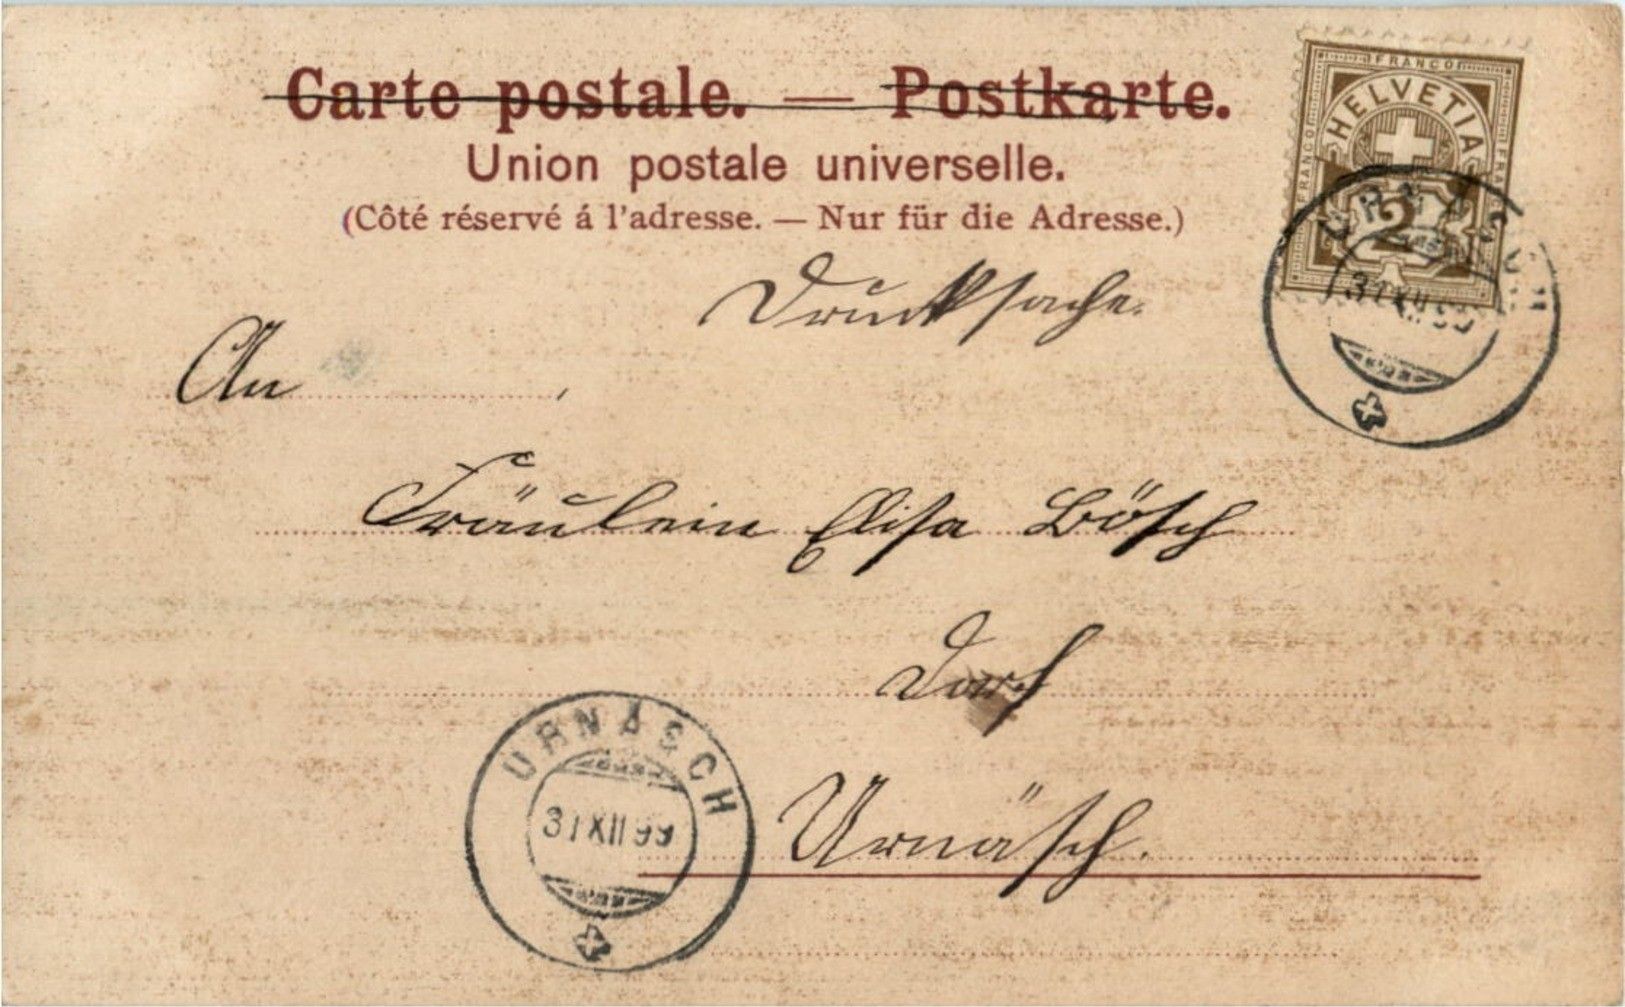 Carte postale. — Postkarte.
Union postale universelle.
(Côté réservé á l'adresse. — Nur für die Adresse.)
FRANCO
HELVETIA
FRANCO
FRANCO
2
URNÄSCH
31 XII 99
Drucksache.
An
Fräulein Elisa Bösch
Dorf
Urnäsch.
URNÄSCH
31 XII 99